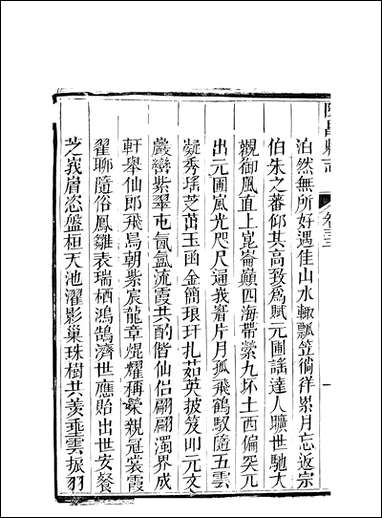 隆昌縣志
卷三
泊然無所好遇佳山水輙飄笠徜徉累月忘返宗
伯朱之蕃仰其高致爲賦元圃謠達人曠世馳大
觀御風直上崑崙巔四海帶縈九坏土西偏突元
出元圃風光咫尺逼我牖片月孤飛鶴馭隨五雲
凝秀瑤芝茁玉函金簡琅玕扎茹英披笈叩元文
巖巒紫翠屯氤氳流霞共酌偕仙侶翩翩濁界成
軒舉仙郎飛舄朝紫宸龍章焜耀稱榮親冠裳霞
翟聊隨俗鳳雛表瑞栖鴻鵠濟世應貽出世安餐
芝峩眉恣盤桓天池濯影巢珠樹共羨垂雲振羽